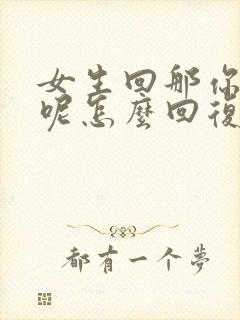 女生回那你
呢怎麼回復
都有一个夢